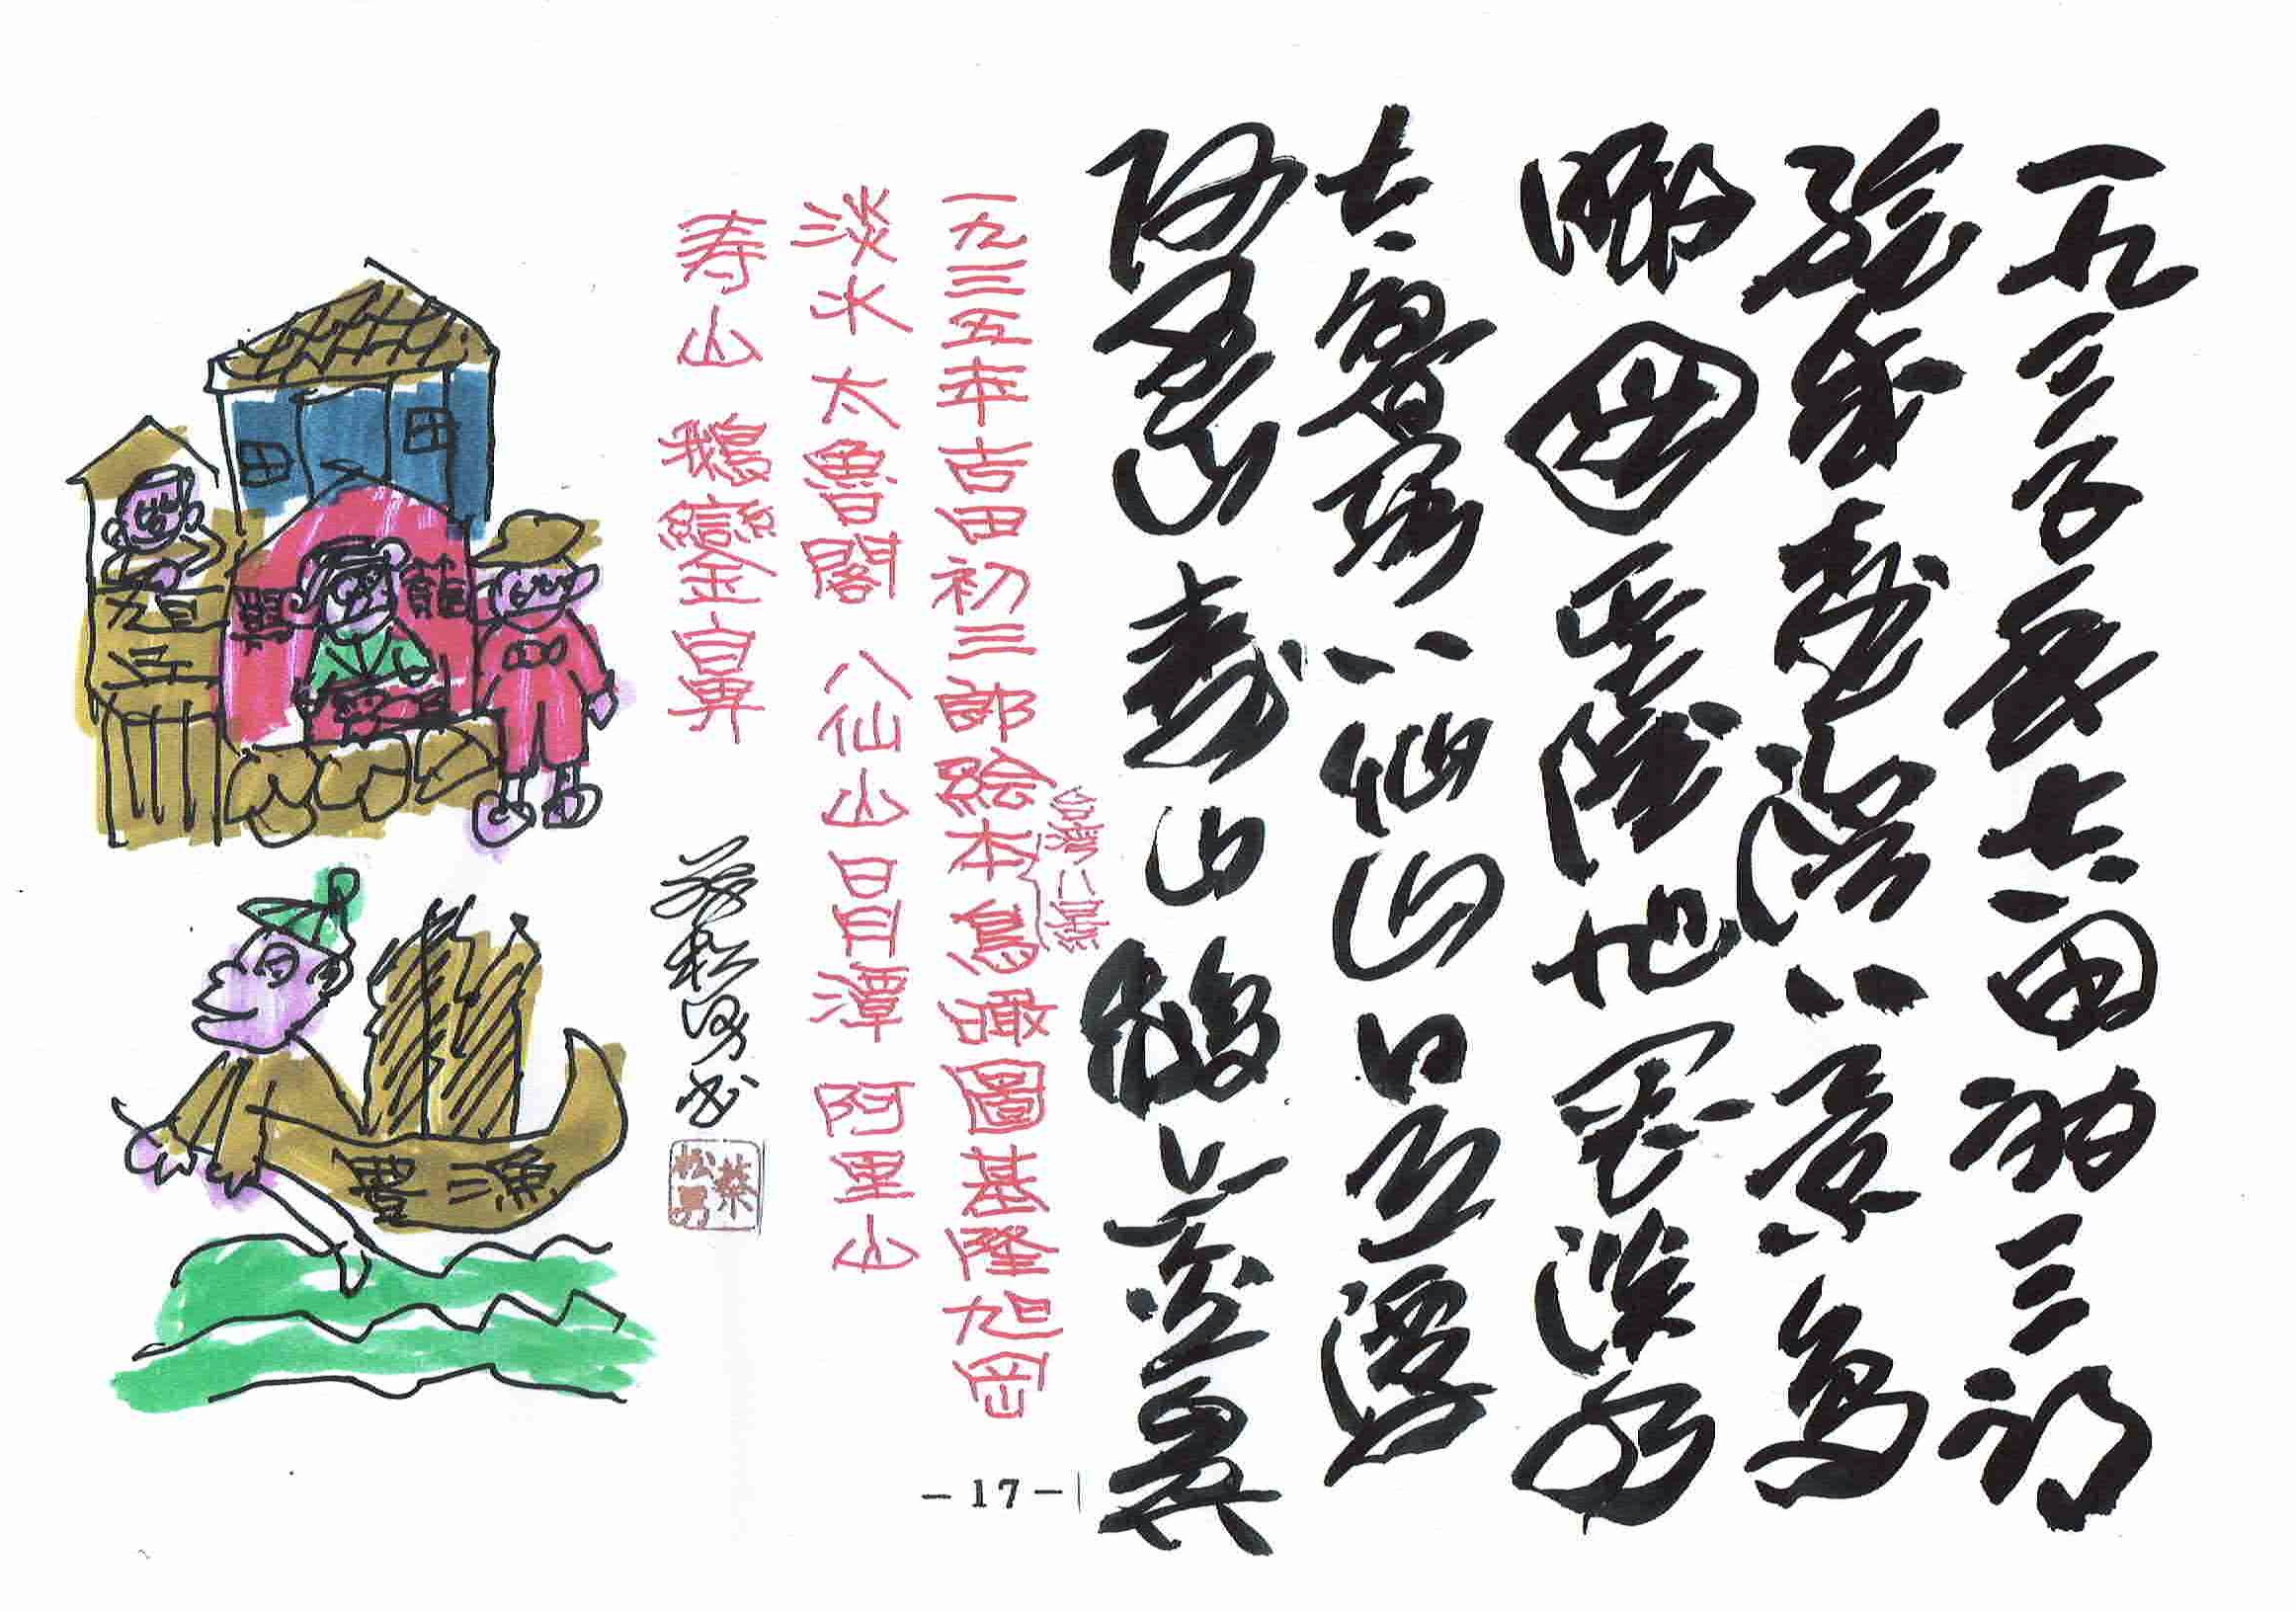 一九三五年吉田初三郎
繪本台灣八景鳥
瞰圖基隆旭岡淡水
太魯閣八仙山日月潭
阿里山壽山鵝鑾鼻
台湾八景
一九三五年吉田初三郎絵本鳥瞰圖基隆旭岡
淡水 太魯閣 八仙山日月潭 阿里山
寿山 鵝鑾鼻
蔡松男书
蔡松男
豐漁
-17-